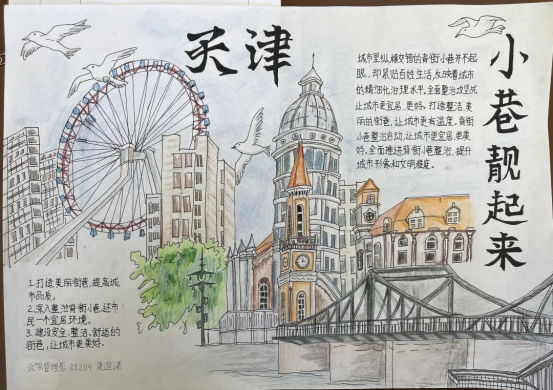 天津
小巷靓起来
城市里纵横交错的背街小巷并不起
眼,却紧贴百姓生活,反映着城市
的精细化治理水平。全面整治攻坚
让城市更宜居、更好。打造整洁、美
丽的街巷,让城市更有温度。背街
小巷整治启动,让城市更宜居、更美
好。全面推进背街小巷整治,提升
城市形象和文明程度。
1.打造美丽街巷,提高城
市品质。
2.深入整治背街小巷,还市
民一个宜居环境。
3.建设安全、整洁、舒适的
街巷,让城市更美好。
公共管理系 23204